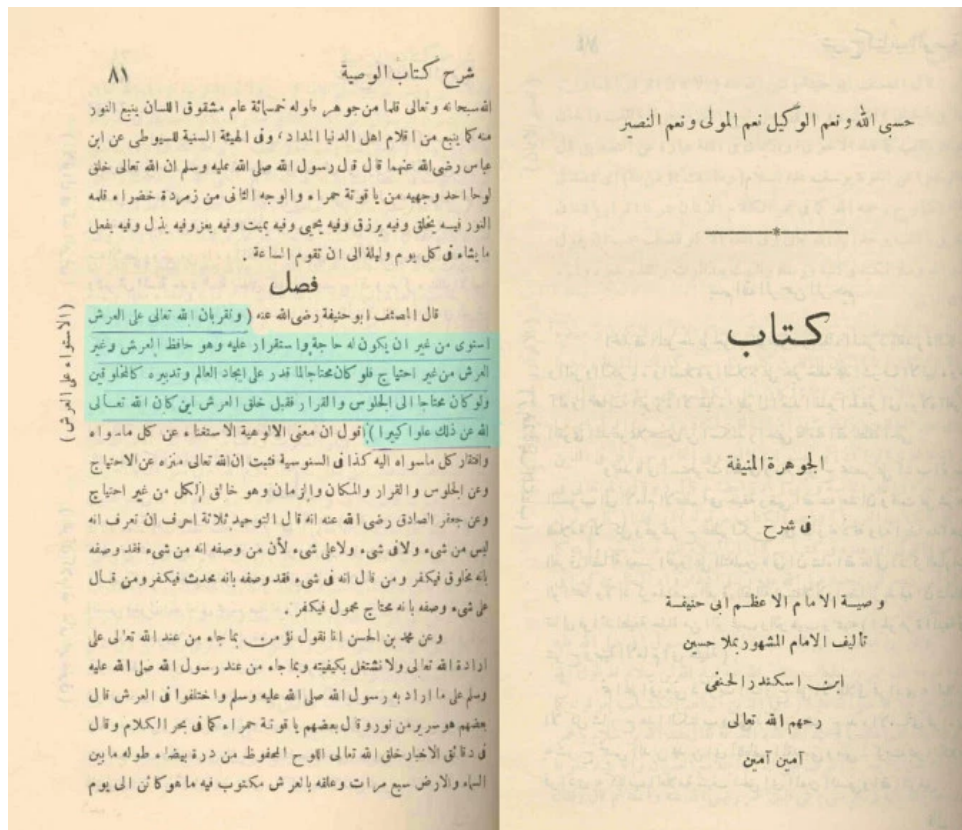 حسبي الله ونعم الوكيل نعم المولى ونعم النصير
كتاب
الجوهرة المنيفة
فى شرح
وصية الامام الاعظم ابى حنيفة
تأليف الامام المشهور بملا حسين
ابن اسكندر الحنفى
رحمهم الله تعالى
آمين آمين
شرح كتاب الوصية ٨١
الله سبحانه وتعالى قلما من جوهر طوله خمسمائة عام مشقوق اللسان ينبع النور
منه كما ينبع من اقلام اهل الدنيا المداد، وفى الهيئة السنية للسيوطى عن ابن
عباس رضى الله عنهما قال قال رسول الله صلى الله عليه وسلم ان الله تعالى خلق
لوحا احد وجهيه من ياقوتة حمراء والوجه الثانى من زمردة خضراء قلمه
النور فيه يخلق وفيه يرزق وفيه يحيى وفيه يميت وفيه يعز وفيه يذل وفيه يفعل
ما يشاء فى كل يوم وليلة الى ان تقوم الساعة .
فصل
قال المصنف ابو حنيفة رضى الله عنه ( ونقر بان الله تعالى على العرش
استوى من غير ان يكون له حاجة واستقرار عليه وهو حافظ العرش وغير
العرش من غير احتياج فلو كان محتاجا لما قدر على ايجاد العالم وتدبيره كالمخلوقين
ولو كان محتاجا الى الجلوس والقرار فقبل خلق العرش اين كان الله تعالى
الله عن ذلك علوا كبيرا ) اقول ان معنى الالوهية الاستغناء عن كل ماسواه
وافتقار كل ماسواه اليه كذا فى السنوسية فثبت ان الله تعالى منزه عن الاحتياج
وعن الجلوس والقرار والمكان والزمان وهو خالق الكل من غير احتياج
وعن جعفر الصادق رضى الله عنه انه قال التوحيد ثلاثة احرف ان تعرف انه
ليس من شىء ولا فى شىء ولا على شىء لأن من وصفه انه من شىء فقد وصفه
بانه مخلوق فيكفر ومن قال انه فى شىء فقد وصفه بانه محدث فيكفر ومن قال
على شىء وصفه بانه محتاج محمول فيكفر .
وعن محمد بن الحسن انا نقول نؤمن بما جاء من عند الله تعالى على
ارادة الله تعالى ولا نشتغل بكيفيته وبما جاء من عند رسول الله صلى الله عليه
وسلم على ما اراد به رسول الله صلى الله عليه وسلم واختلفوا فى العرش قال
بعضهم هو سرير من نور وقال بعضهم ياقوتة حمراء كما فى بحر الكلام وقال
فى دقائق الاخبار خلق الله تعالى اللوح المحفوظ من درة بيضاء طوله ما بين
السماء والارض سبع مرات وعلقه بالعرش مكتوب فيه ما هو كائن الى يوم
( الاستواء على العرش )